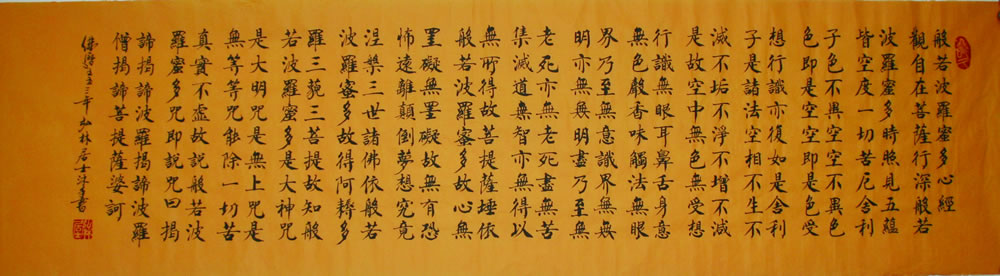 般若波羅蜜多心經
觀自在菩薩行深般若
波羅蜜多時照見五蘊
皆空度一切苦厄舍利
子色不異空空不異色
色即是空空即是色受
想行識亦復如是舍利
子是諸法空相不生不
滅不垢不淨不增不減
是故空中無色無受想
行識無眼耳鼻舌身意
無色聲香味觸法無眼
界乃至無意識界無無
明亦無無明盡乃至無
老死亦無老死盡無苦
集滅道無智亦無得以
無所得故菩提薩埵依
般若波羅蜜多故心無
罣礙無罣礙故無有恐
怖遠離顛倒夢想究竟
涅槃三世諸佛依般若
波羅蜜多故得阿耨多
羅三藐三菩提故知般
若波羅蜜多是大神咒
是大明咒是無上咒是
無等等咒能除一切苦
真實不虛故說般若波
羅蜜多咒即說咒曰揭
諦揭諦波羅揭諦波羅
僧揭諦菩提薩婆訶
年少林居士書